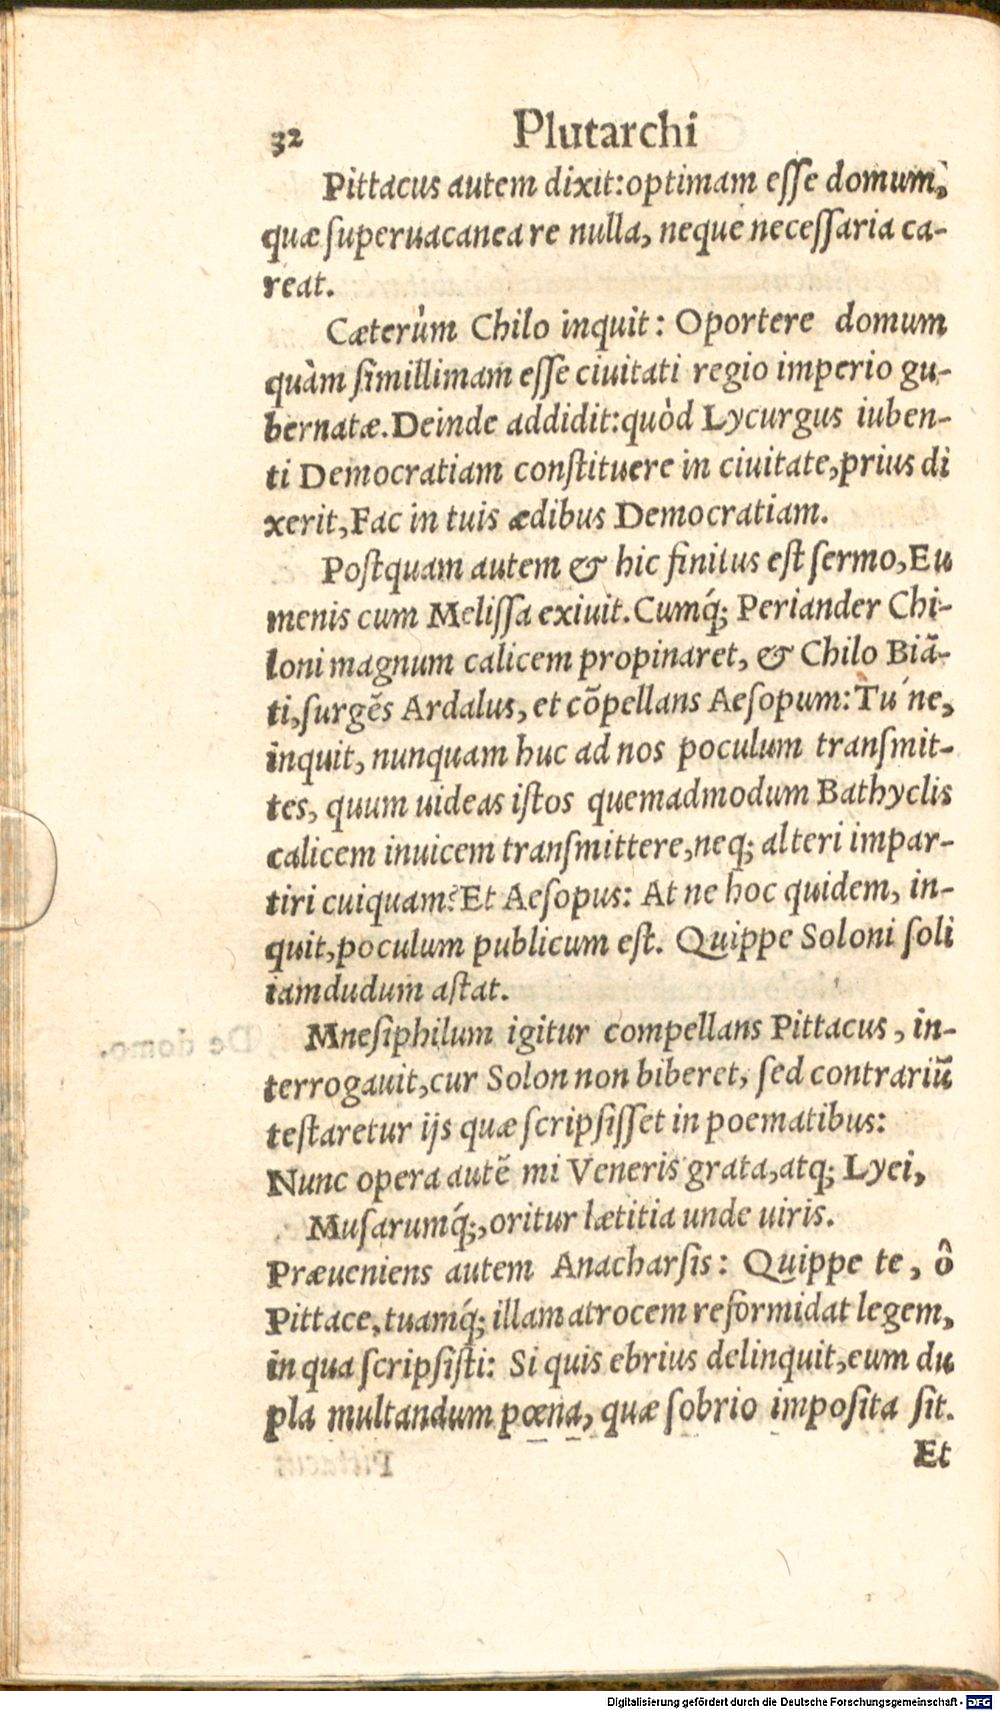 32 Plutarchi
Pittacus autem dixit:optimam eſſe domum,
quæ ſuperuacanea re nulla, neque neceſſaria ca-
reat.
Cæterùm Chilo inquit: Oportere domum
quàm ſimillimam eſſe ciuitati regio imperio gu-
bernatæ. Deinde addidit:quòd Lycurgus iuben-
ti Democratiam conſtituere in ciuitate,prius di
xerit,Fac in tuis ædibus Democratiam.
Poſtquam autem & hic finitus eſt ſermo,Eu
menis cum Meliſſa exiuit. Cumq́; Periander Chi-
loni magnum calicem propinaret, & Chilo Biã-
ti,ſurgẽs Ardalus, et cõpellans Aeſopum: Tu ne,
inquit, nunquam huc ad nos poculum tranſmit-
tes, quum uideas iſtos quemadmodum Bathyclis
calicem inuicem tranſmittere,neq; alteri impar-
tiri cuiquam? Et Aeſopus: At ne hoc quidem, in-
quit,poculum publicum eſt. Quippe Soloni ſoli
iamdudum aſtat.
Mneſiphilum igitur compellans Pittacus, in-
terrogauit,cur Solon non biberet, ſed contrariũ
teſtaretur ijs quæ ſcripſiſſet in poematibus:
Nunc opera autẽ mi Veneris grata,atq; Lyei,
Muſarumq́;,oritur lætitia unde uiris.
Præueniens autem Anacharſis: Quippe te, ô
Pittace,tuamq́; illam atrocem reformidat legem,
in qua ſcripſiſti: Si quis ebrius delinquit,eum du
pla multandum pœna, quæ ſobrio impoſita ſit.
Et
Digitalisierung gefördert durch die Deutsche Forschungsgemeinschaft - DFG